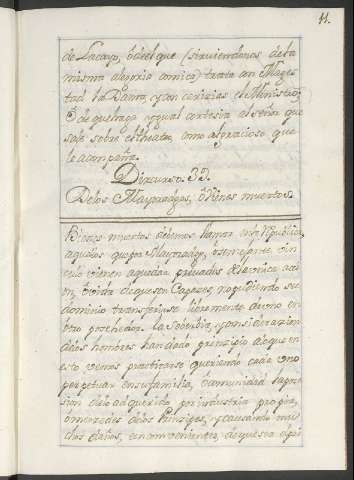 11.
de Lacayo, ò del que (sirviendonos de la
misma alegoria comica) trata con Mages
tad la Dama, y con caricias el Ministro,
y de que haga igual cortesia al señor que
sale sobre el theatro, como al gracioso que
le acompaña.
Discurso. 33.
De los Mayorazgos, ò Vienes muertos.
Bienes muertos debemos llamar en la Republica
aquellos que por Mayorazgo, ò semejante vin
culo vienen a quedar privados de la unica acci
on, ò vida de que son Capazes, no pudiendo su
dominio transferirse libremente de uno en
otro posehedor. La soberbia, y consideracion
de los hombres han dado principio a lo que en
esto vemos practicarse queriendo cada uno
perpetuar en su familia, ò comunidad la po
sesion de lo adquerido por industria propia,
o mercedes de los Principes, y causando mu
chos daños, è inconvenientes, de que son